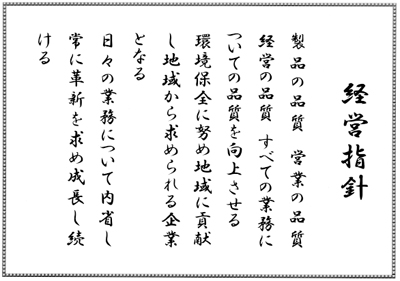 経営指針
製品の品質　営業の品質
経営の品質　すべての業務に
ついての品質を向上させる
環境保全に努め地域に貢献
し地域から求められる企業
となる
日々の業務について内省し
常に革新を求め成長し続
ける